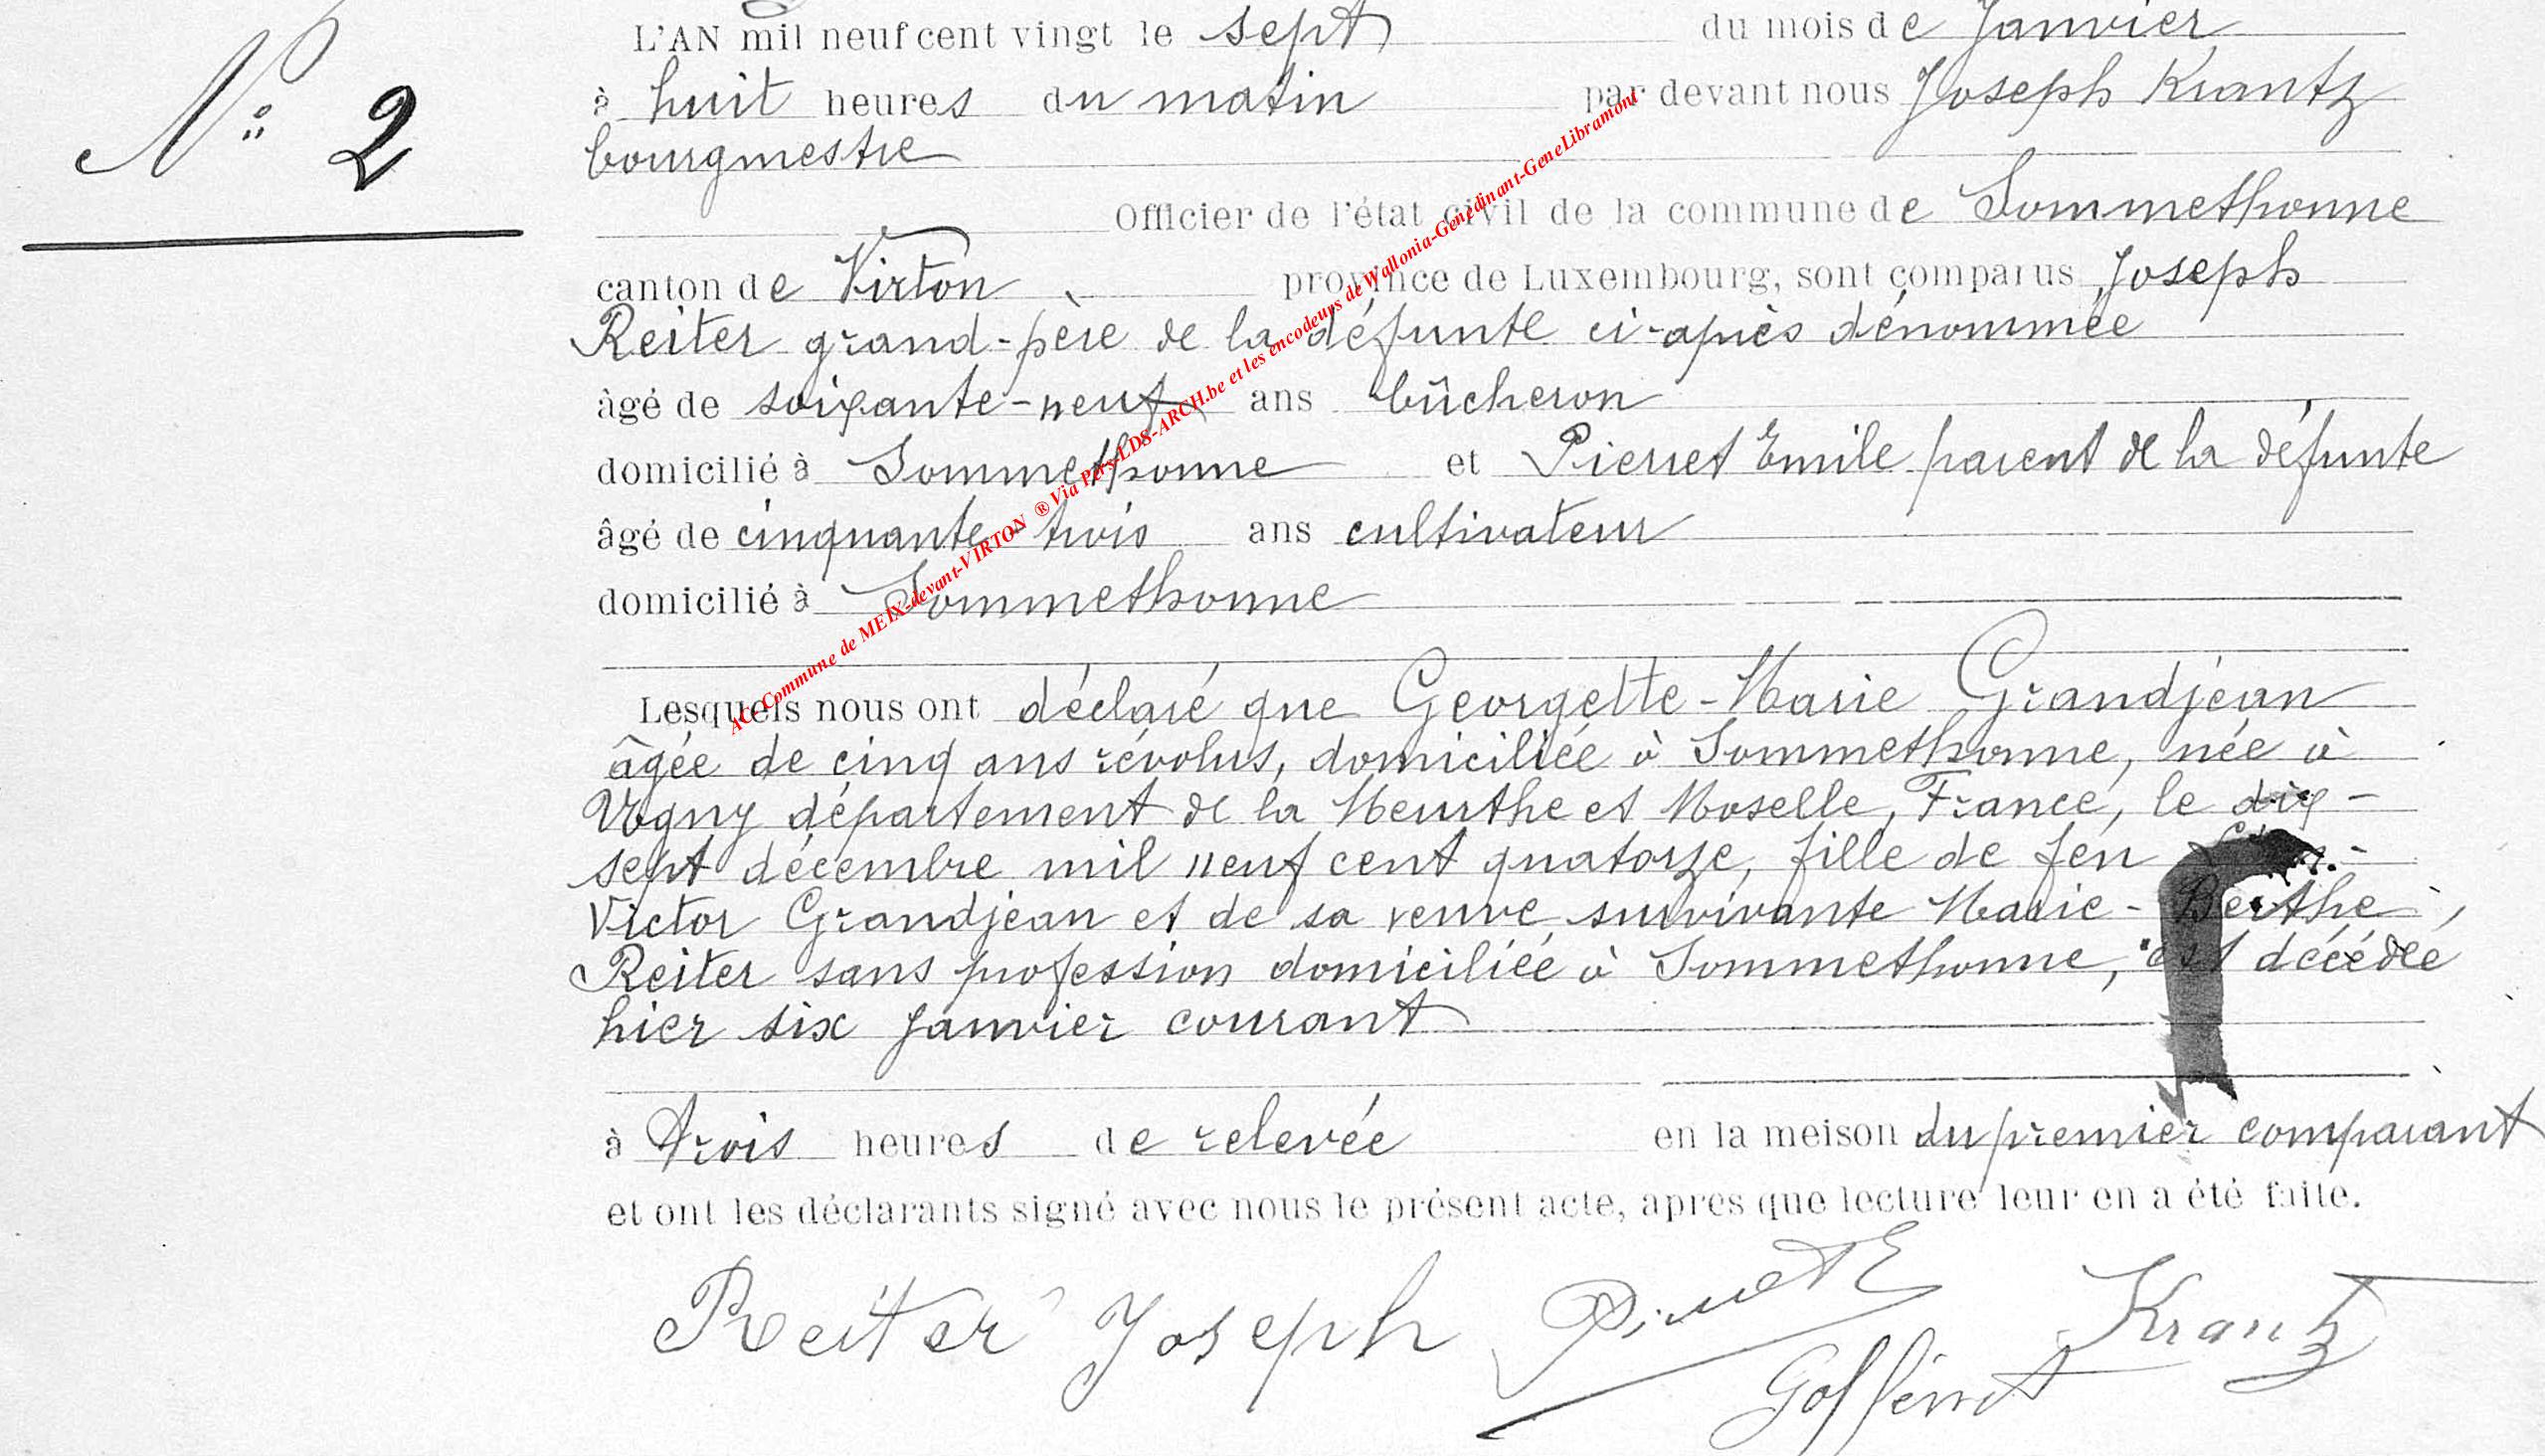 N° 2
L'AN mil neuf cent vingt le sept du mois de Janvier
à huit heures du matin par devant nous Joseph Krantz
bourgmestre
Officier de l'état civil de la commune de Sommethonne
canton de Virton province de Luxembourg, sont comparus Joseph
Reiter grand-père de la défunte ci-après dénommée
âgé de soixante-neuf ans bûcheron
domicilié à Sommethonne et Pierret Emile parent de la défunte
âgé de cinquante-trois ans cultivateur
domicilié à Sommethonne
Lesquels nous ont déclaré que Georgette-Marie Grandjean
âgée de cinq ans révolus, domiciliée à Sommethonne, née à
département de la Meurthe et Moselle, France, le dix-
sept décembre mil neuf cent quatorze, fille de feu
Victor Grandjean et de sa veuve survivante Marie-Berthe
Reiter sans profession domiciliée à Sommethonne, est décédée
hier six Janvier courant
à trois heures de relevée en la meison du premier comparant
et ont les déclarants signé avec nous le présent acte, apres que lecture leur en a été faite.
Reiter Joseph Pierret E Krantz
Goffinet
AC Commune de MEIX-devant-VIRTON ® Via Pers-LDS-ARCH.be et les encodeurs de Wallonia-Genedinant-GeneLibramont